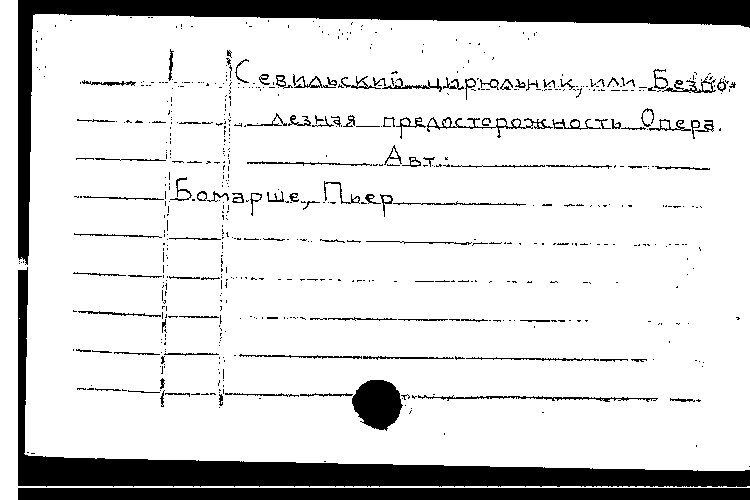 Севильский цирюльник, или Безпо-
лезная предосторожность Опера.
Авт.:
Бомарше, Пьер